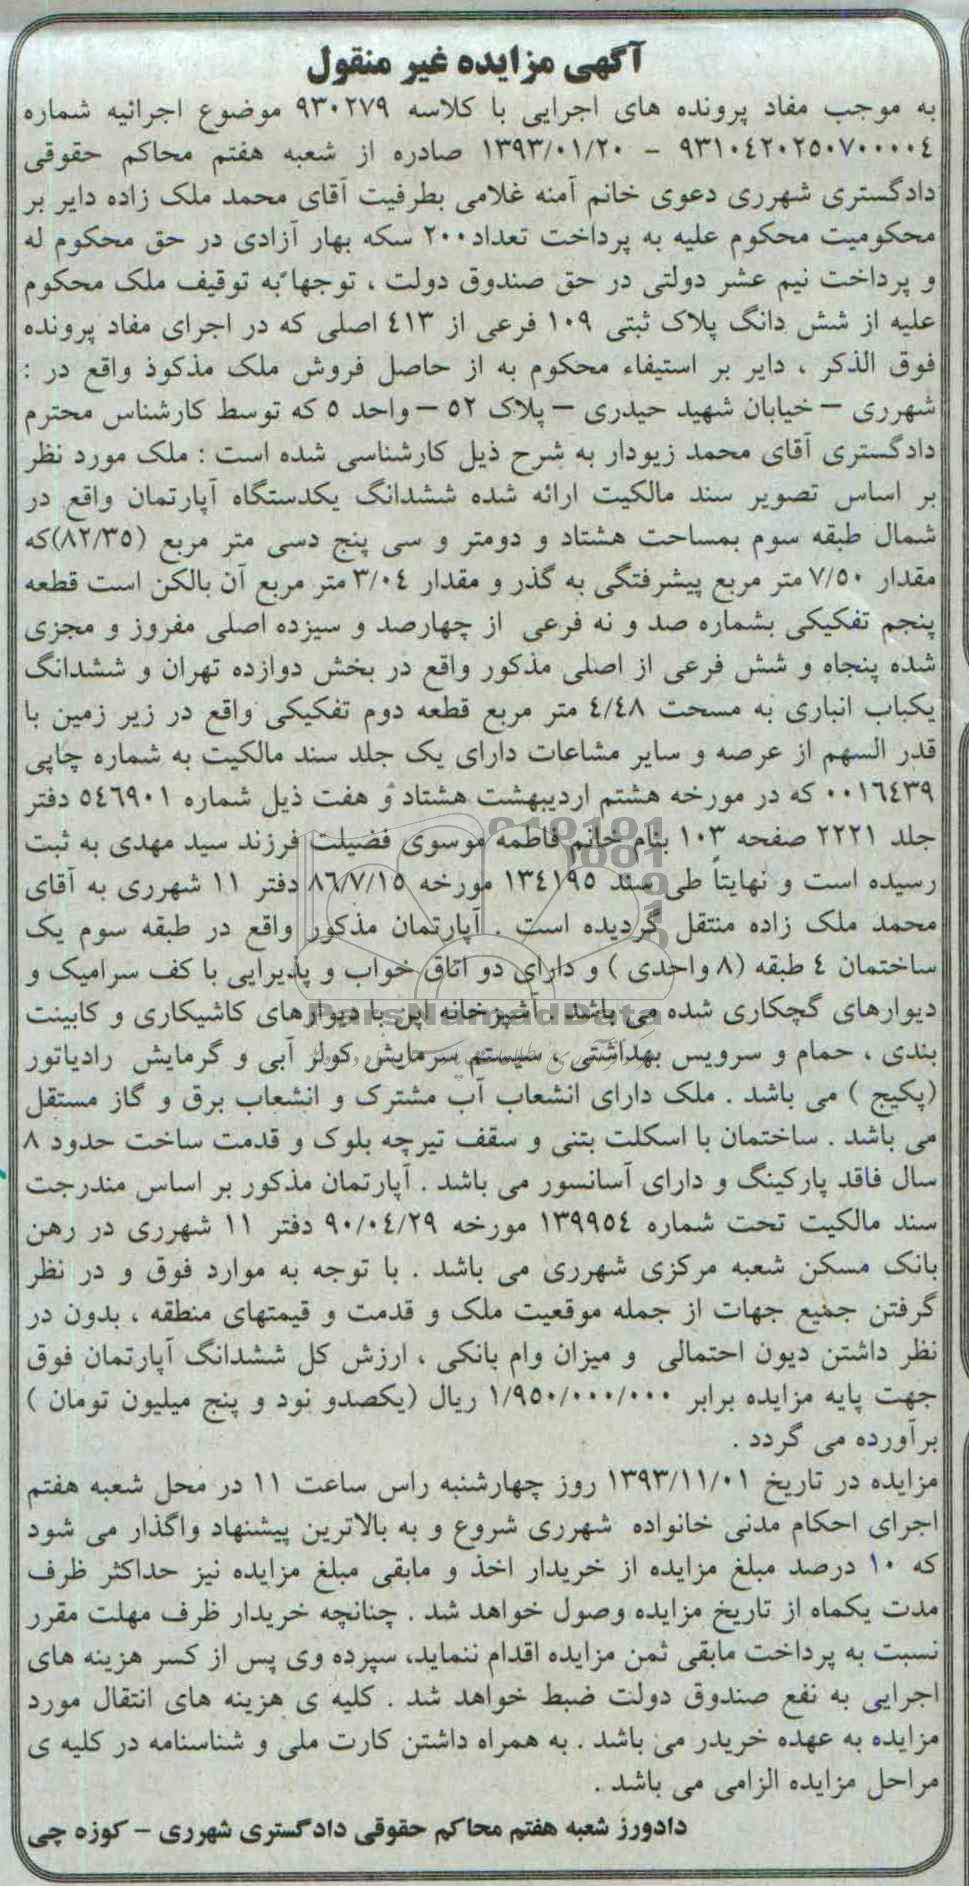 آگهی مزایده غیر منقول
به موجب مفاد پرونده های اجرایی با کلاسه ۹۳۰۲۷۹ موضوع اجرائیه شماره
۹۳۱۰٤۲۰۲۵۰۷۰۰۰۰٤ - ۱۳۹۳/۰۱/۲۰ صادره از شعبه هفتم محاکم حقوقی
دادگستری شهرری دعوی خانم آمنه غلامی بطرفیت آقای محمد ملک زاده دایر بر
محکومیت محکوم علیه به پرداخت تعداد۲۰۰ سکه بهار آزادی در حق محکوم له
و پرداخت نیم عشر دولتی در حق صندوق دولت ، توجهاً به توقیف ملک محکوم
علیه از شش دانگ پلاک ثبتی ۱۰۹ فرعی از ٤۱۳ اصلی که در اجرای مفاد پرونده
فوق الذکر ، دایر بر استیفاء محکوم به از حاصل فروش ملک مذکوذ واقع در :
شهرری – خیابان شهید حیدری – پلاک ۵۲ – واحد ۵ که توسط کارشناس محترم
دادگستری آقای محمد زیودار به شرح ذیل کارشناسی شده است : ملک مورد نظر
بر اساس تصویر سند مالکیت ارائه شده ششدانگ یکدستگاه آپارتمان واقع در
شمال طبقه سوم بمساحت هشتاد و دومتر و سی پنج دسی متر مربع (۸۲/۳۵)که
مقدار ۷/۵۰ متر مربع پیشرفتگی به گذر و مقدار ۳/۰٤ متر مربع آن بالکن است قطعه
پنجم تفکیکی بشماره صد و نه فرعی از چهارصد و سیزده اصلی مفروز و مجزی
شده پنجاه و شش فرعی از اصلی مذکور واقع در بخش دوازده تهران و ششدانگ
یکباب انباری به مسحت ٤/٤۸ متر مربع قطعه دوم تفکیکی واقع در زیر زمین با
قدر السهم از عرصه و سایر مشاعات دارای یک جلد سند مالکیت به شماره چاپی
۰۰۱٦٤۳۹ که در مورخه هشتم اردیبهشت هشتاد و هفت ذیل شماره ۵٤٦۹۰۱ دفتر
جلد ۲۲۲۱ صفحه ۱۰۳ بنام خانم فاطمه موسوی فضیلت فرزند سید مهدی به ثبت
رسیده است و نهایتاً طی سند ۱۳٤۱۹۵ مورخه ۸٦/۷/۱۵ دفتر ۱۱ شهرری به آقای
محمد ملک زاده منتقل گردیده است . آپارتمان مذکور واقع در طبقه سوم یک
ساختمان ٤ طبقه (۸ واحدی ) و دارای دو اتاق خواب و پذیرایی با کف سرامیک و
دیوارهای گچکاری شده می باشد . آشپزخانه اپن با دیوارهای کاشیکاری و کابینت
بندی ، حمام و سرویس بهداشتی ، سیستم سرمایش کولر آبی و گرمایش رادیاتور
(پکیج ) می باشد . ملک دارای انشعاب آب مشترک و انشعاب برق و گاز مستقل
می باشد . ساختمان با اسکلت بتنی و سقف تیرچه بلوک و قدمت ساخت حدود ۸
سال فاقد پارکینگ و دارای آسانسور می باشد . آپارتمان مذکور بر اساس مندرجت
سند مالکیت تحت شماره ۱۳۹۹۵٤ مورخه ۹۰/۰٤/۲۹ دفتر ۱۱ شهرری در رهن
بانک مسکن شعبه مرکزی شهرری می باشد . با توجه به موارد فوق و در نظر
گرفتن جمیع جهات از جمله موقعیت ملک و قدمت و قیمتهای منطقه ، بدون در
نظر داشتن دیون احتمالی و میزان وام بانکی ، ارزش کل ششدانگ آپارتمان فوق
جهت پایه مزایده برابر ۱/۹۵۰/۰۰۰/۰۰۰ ریال (یکصدو نود و پنج میلیون تومان )
برآورده می گردد .
مزایده در تاریخ ۱۳۹۳/۱۱/۰۱ روز چهارشنبه راس ساعت ۱۱ در محل شعبه هفتم
اجرای احکام مدنی خانواده شهرری شروع و به بالاترین پیشنهاد واگذار می شود
که ۱۰ درصد مبلغ مزایده از خریدار اخذ و مابقی مبلغ مزایده نیز حداکثر ظرف
مدت یکماه از تاریخ مزایده وصول خواهد شد . چنانچه خریدار ظرف مهلت مقرر
نسبت به پرداخت مابقی ثمن مزایده اقدام ننماید، سپرده وی پس از کسر هزینه های
اجرایی به نفع صندوق دولت ضبط خواهد شد . کلیه ی هزینه های انتقال مورد
مزایده به عهده خریدر می باشد . به همراه داشتن کارت ملی و شناسنامه در کلیه ی
مراحل مزایده الزامی می باشد .
دادورز شعبه هفتم محاکم حقوقی دادگستری شهرری - کوزه چی
ParsNamadData